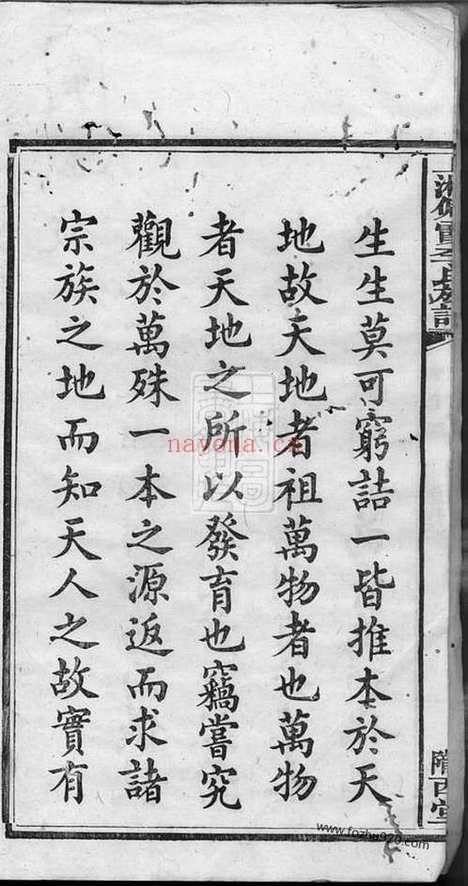 生生莫可窮詰一皆推本於天
地故夫地者祖萬物者也萬物
者天地之所以發育也竊嘗究
觀於萬殊一本之源返而求諸
宗族之地而知天人之故實有
隴西堂
nayona.cn
www.fozhu920.com